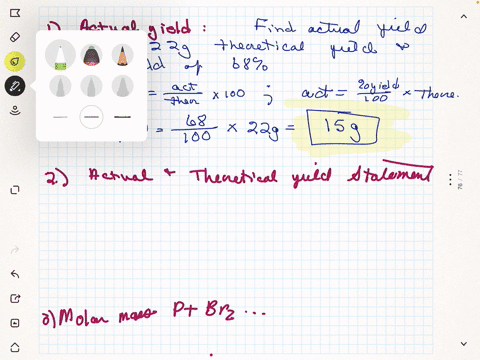 1) Actual yield : Find actual yield
22g theoretical yield &
of 68%
= act/theor × 100 ; act = %yield/100 × Theore.
= 68/100 × 22g = 15g
2) Actual & Theoretical yield Statement
3) Molar mass P + Br2 ...
76 / 77